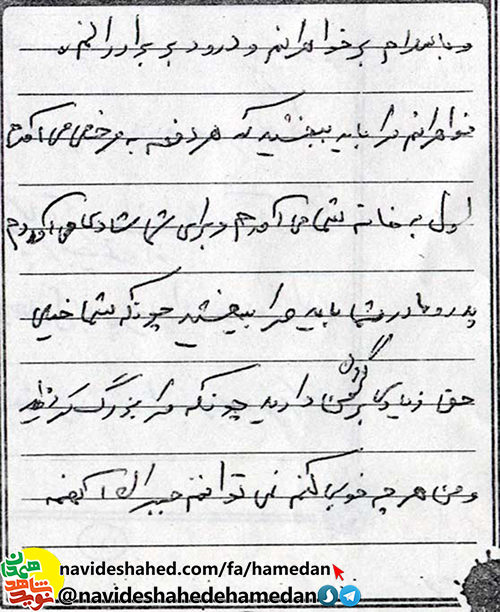 و با سلام بر خواهرانم و درود بر برادرانم.
خواهرانم مرا باید ببخشید که هر دفعه به مرخصی می آمدم
اول به خانه شما می آمدم و برای شما شادی می آوردم
پدر و مادر شما باید مرا ببخشید چونکه شما خیلی
گردن
حق زیادی بر من دارید چونکه مرا بزرگ کردید
و من هر چه خوبی کنم نمی توانم جبران کنم
navideshahed.com/fa/hamedan
@navideshahedehamedan